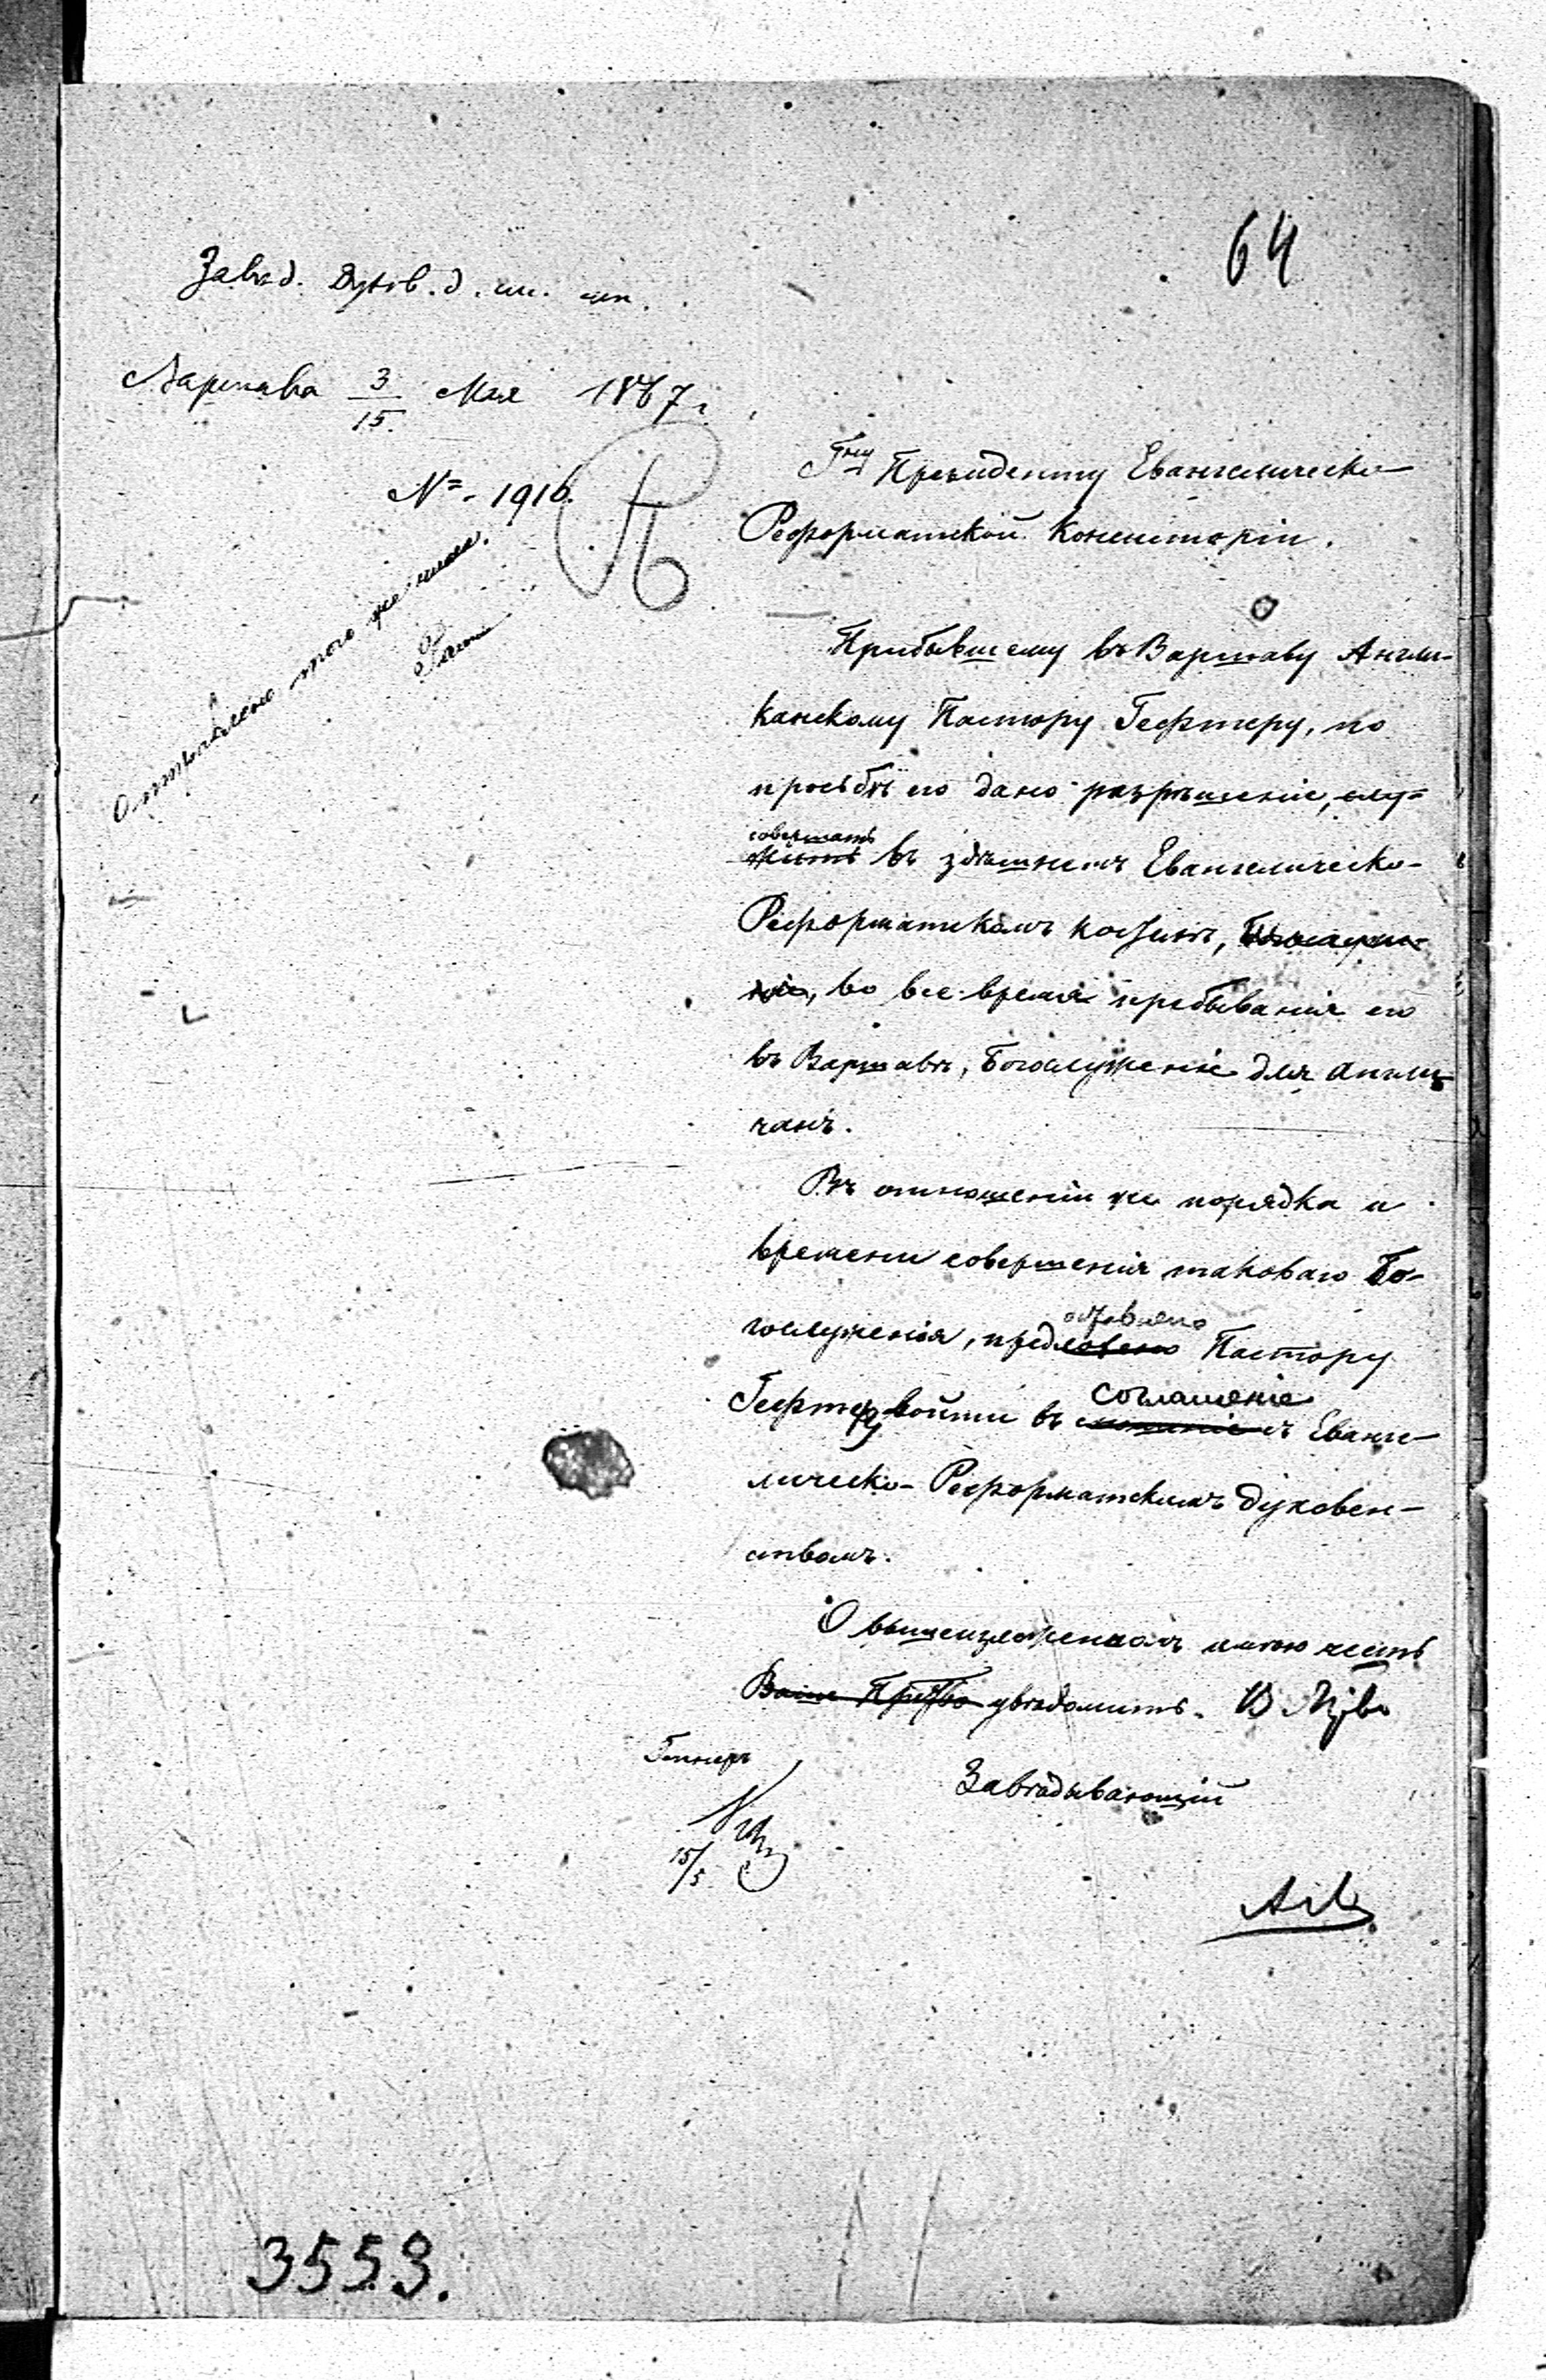 64
Завѣд. Духов. д. ин. исп.
Варшава 3/15 Мая 1867 г.
№ 1916.
Отправлено того же числа.
Гну Президенту Евангелическо-
Реформатской Консисторіи.
Прибывшему въ Варшаву Англи-
канскому Пастору Гефтеру, по
просьбѣ его дано разрѣшеніе, слу-
совершать
жить въ здѣшнемъ Евангелическо-
Реформатскомъ костелѣ, Богослуже-
ніе, во все время пребыванія его
въ Варшавѣ, Богослуженіе для Англи-
чанъ.
Въ отношеніи же порядка и
времени совершенія таковаго Бо-
гослуженія, предложено Пастору
оставлено
Гефтеру войти въ съ Еванге-
соглашеніе
лическо-Реформатскимъ духовен-
ствомъ.
О вышеизложенномъ имѣю честь
Ваше увѣдомить.
Завѣдывающій
15/5
3553.